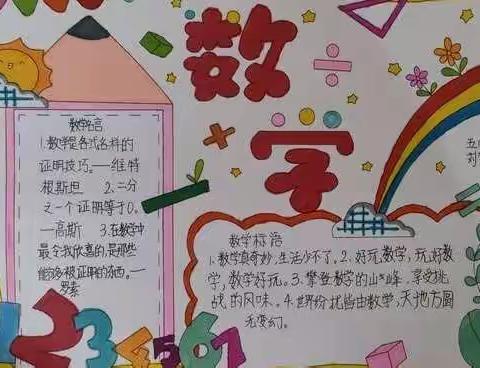 数
学
数学名言
1.数学是各式各样的
证明技巧。——维特
根斯坦 2.二分
之一个证明等于0。
——高斯 3.在数学中
最令我欣喜的,是那些
能够被证明的东西。——
罗素
数学标语
1.数学真奇妙,生活少不了。2.好玩数学,玩好数
学,数学好玩。3.攀登数学的山峰,享受挑
战的风味。4.世界纷扰皆由数学,天地方圆
无变幻。
五
刘
1234567